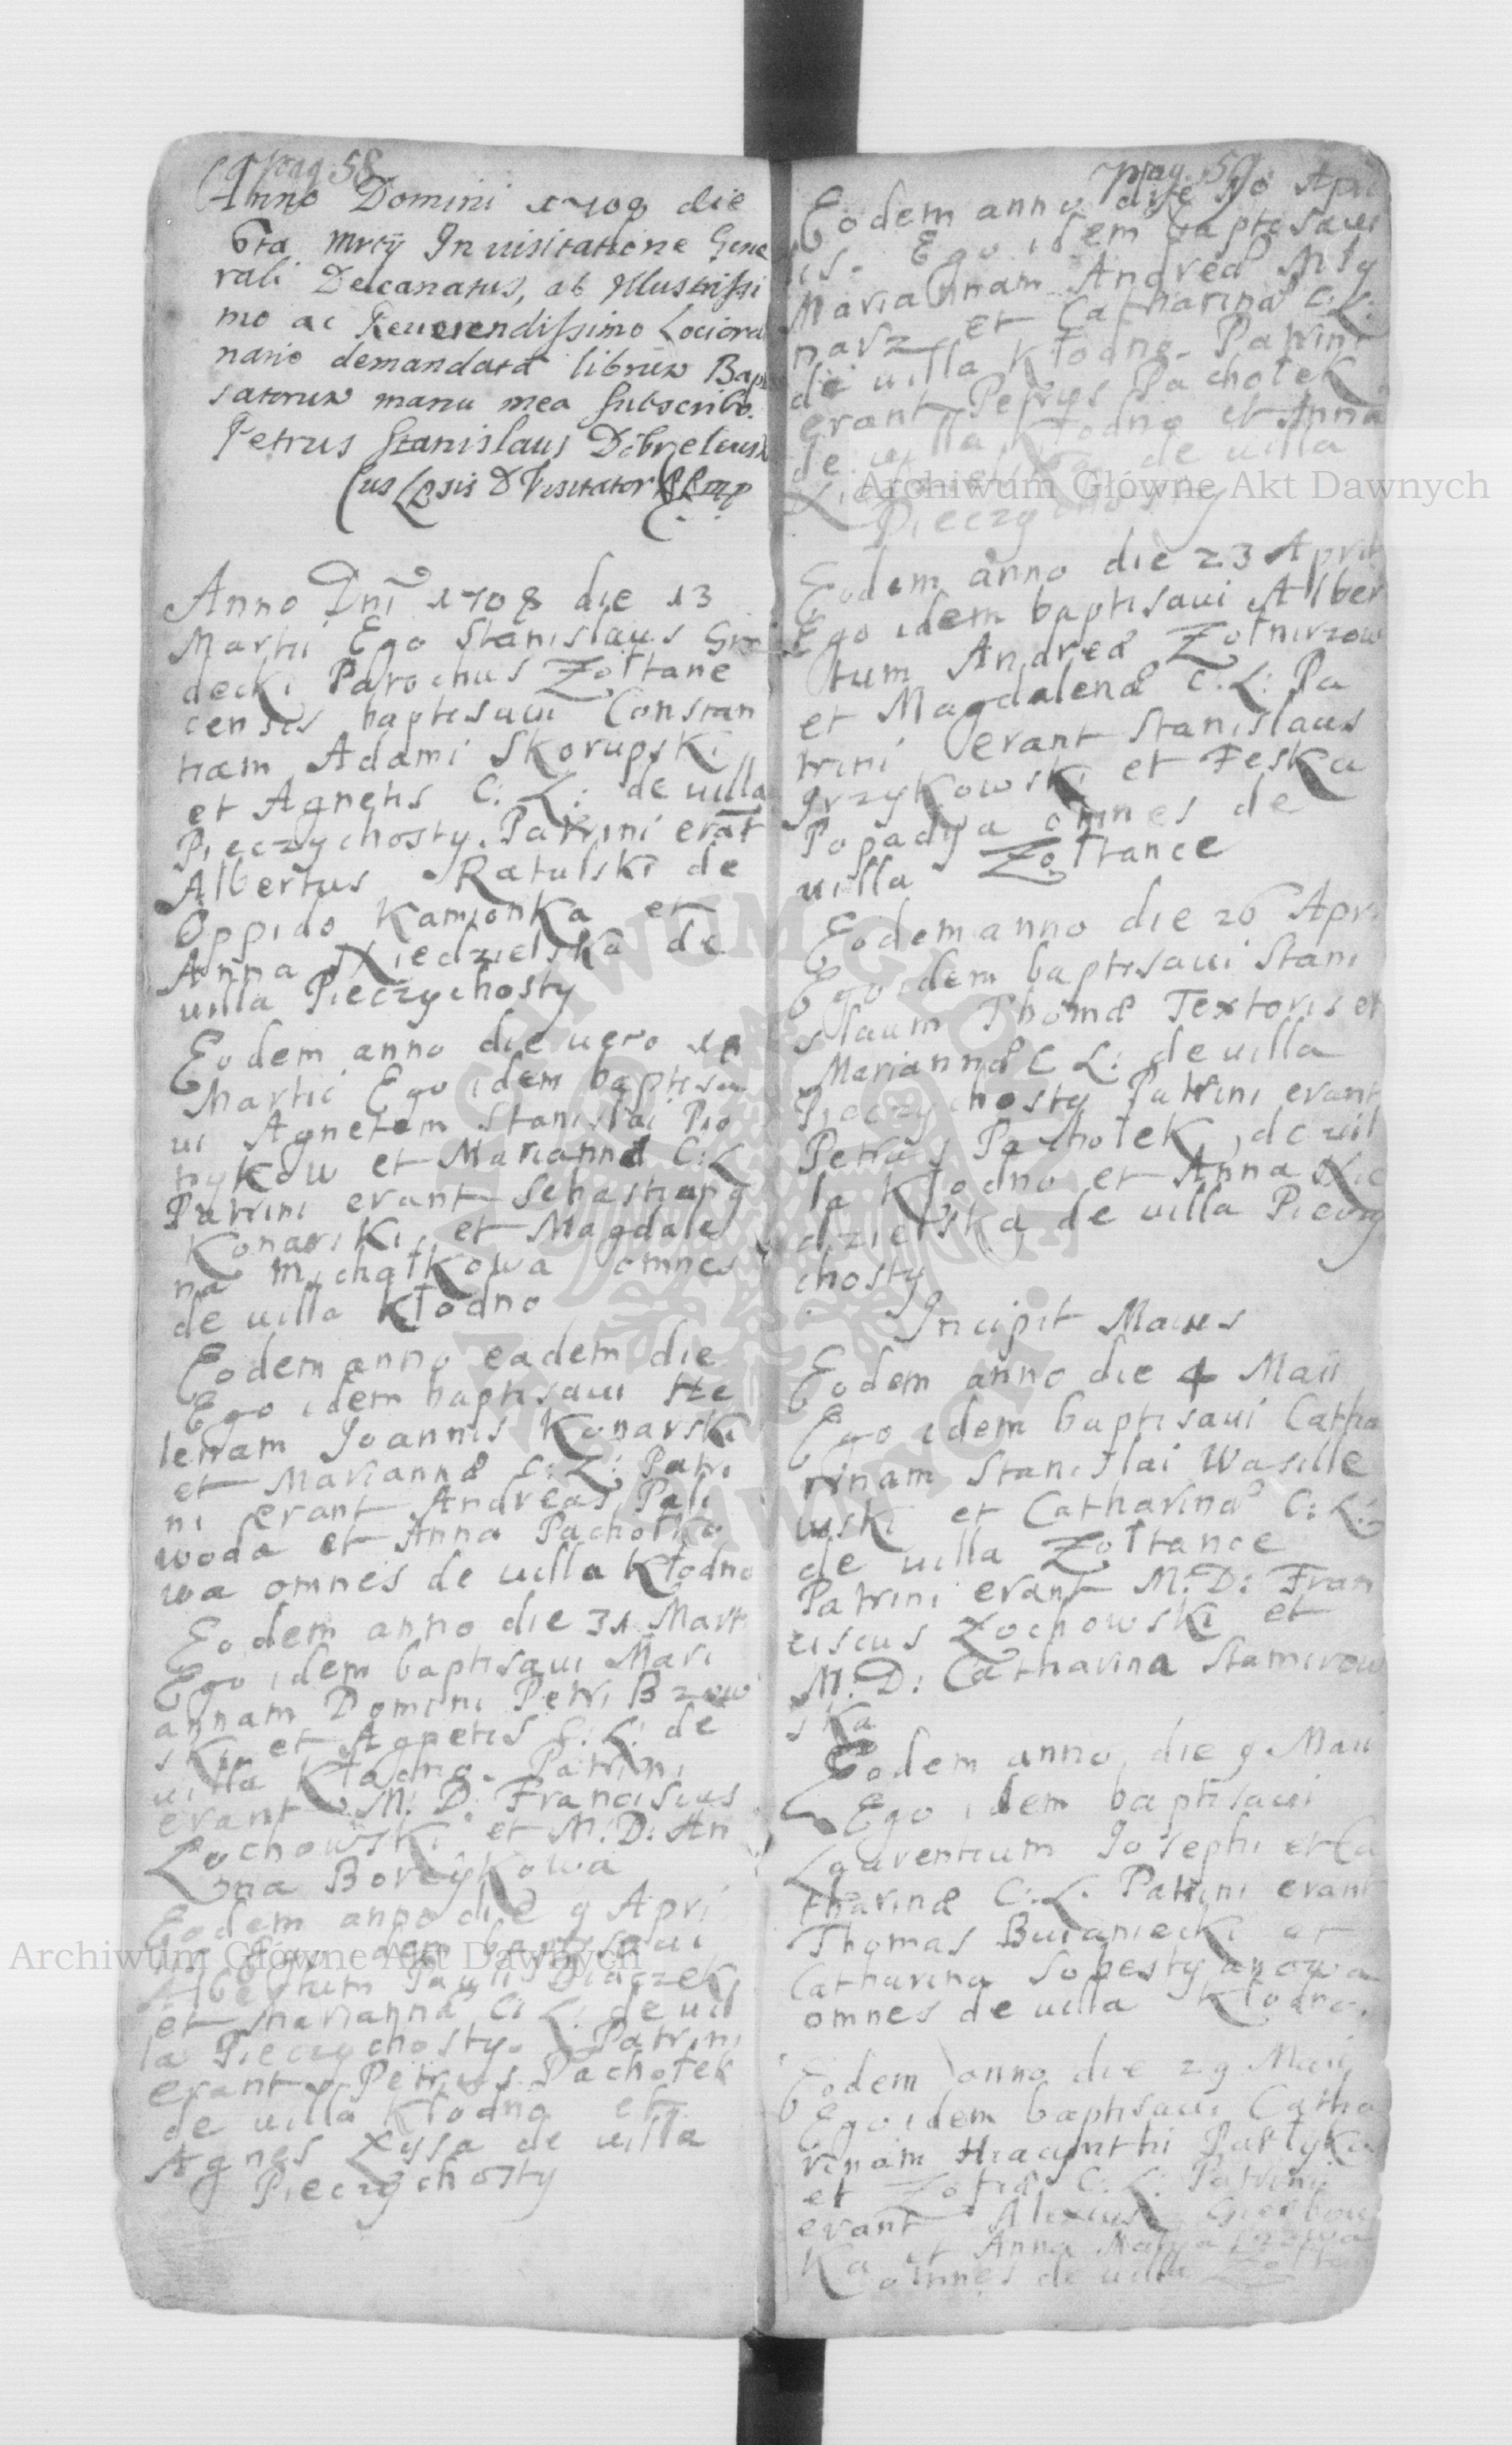 pag. 58
Anno Domini 1708 die
6ta Mrcij In uisitatione Gene
rali Decanatus, ab Illustrissi
mo ac Reuerendissimo Lociordi
nario demandata librum Bapti
satorum manu mea subscribo.
Petrus Stanislaus
Visitator

Anno Dni 1708 die 13
Martii Ego Stanislaus Gro
decki Parochus Zołtane
censis baptisaui Constan
tiam Adami Skorupski
et Agnetis C: L: de uilla
Pieczychosty. Patrini erāt
Albertus Ratulski de
Oppido Kamionka et
Anna Niedzielska de
uilla Pieczychosty
Eodem anno die uero
Martii Ego idem baptisa
ui Agnetem Stanislai Pio
nykow et Mariannæ C: L
Patrini erant Sebastianq
Konarski et Magdale
na Michałkowa omnes
de uilla Kłodno
Eodem anno eadem die
Ego idem baptisaui He
lenam Joannis Konarski
et Mariannæ C: L: Patri
ni erant Andreas Pali
woda et Anna Pachołko
wa omnes de uilla Kłodno
Eodem anno die 31 Marti
Ego idem baptisaui Mari
annam Domini Petri Brzow
ski et Agnetis C: L: de
uilla Kłodno. Patrini
erant M: D: Franciscus
Zochowski et M: D: An
na Borcykowa
Eodem anno die 9 Apri
Ego idem baptisaui
Albertum Pauli Diaczek
et Mariannæ C: L: de uil
la Pieczychosty. Patrini
erant Petrus Pachołek
de uilla Kłodno et
Agnes Łyssa de uilla
Pieczychosty

pag. 59
Eodem anno die 10 Apri
lis. Ego idem baptisaui
Mariannam Andreæ Mły
narz et Catharinæ C: L:
de uilla Kłodno. Patrini
erant Petrus Pachołek
de uilla Kłodno et Anna
de uilla
Pieczychosty
Eodem anno die 23 April
Ego idem baptisaui Alber
tum Andreæ Zołnirzow
et Magdalenæ C: L: Pa
trini erant Stanislaus
Grzykowski et Feska
Popadya omnes de
uilla Zołtance
Eodem anno die 26 Apri
Ego idem baptisaui Stani
slaum Thomæ Textoris et
Mariannæ C L: de uilla
Pieczychosty Patrini erant
Petrus Pachołek, de uil
la Kłodno et Anna Nie
dzielska de uilla Pieczy
chosty
Incipit Maius
Eodem anno die 4 Maii
Ego idem baptisaui Catha
rinam Stanislai Wasile
wski et Catharinæ C: L:
de uilla Zołtance
Patrini erant M: D: Fran
ciscus Zochowski et
M: D: Catharina Stamirow
ska
Eodem anno die 9 Maii
Ego idem baptisaui
Laurentium Josephi et Ca
tharinæ C: L. Patrini erant
Thomas Bucaniecki et
Catharina Sobestyanowa
omnes de uilla Kłodno.
Eodem anno die 29 Maij
Ego idem baptisaui Catha
rinam Hiacynthi Pastyka
et Zofiæ C: L: Patrini
erant Alexius
ka et Anna
omnes de uilla Zołtan
Archiwum Główne Akt Dawnych
Archiwum Główne Akt Dawnych
ARCHIWUM GŁÓWNE AKT DAWNYCH